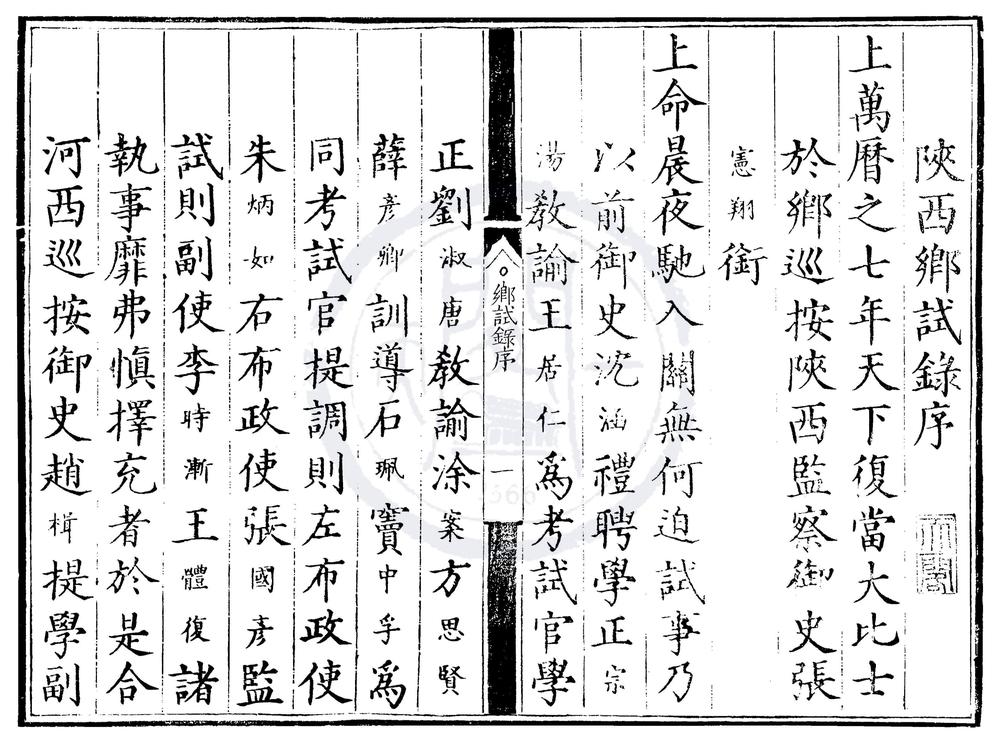 陝西鄉試錄序
上萬曆之七年天下復當大比士
於鄉巡按陝西監察御史張
憲翔銜
上命晨夜馳入關無何迫試事乃
以前御史沈涵禮聘學正宗
湯教諭王居仁為考試官學
鄉試錄序
一
正劉淑唐教諭涂案方思賢
薛彥卿訓導石珮竇中孚為
同考試官提調則左布政使
朱炳如右布政使張國彥監
試則副使李時漸王體復諸
執事靡弗慎擇充者於是合
河西巡按御史趙楫提學副